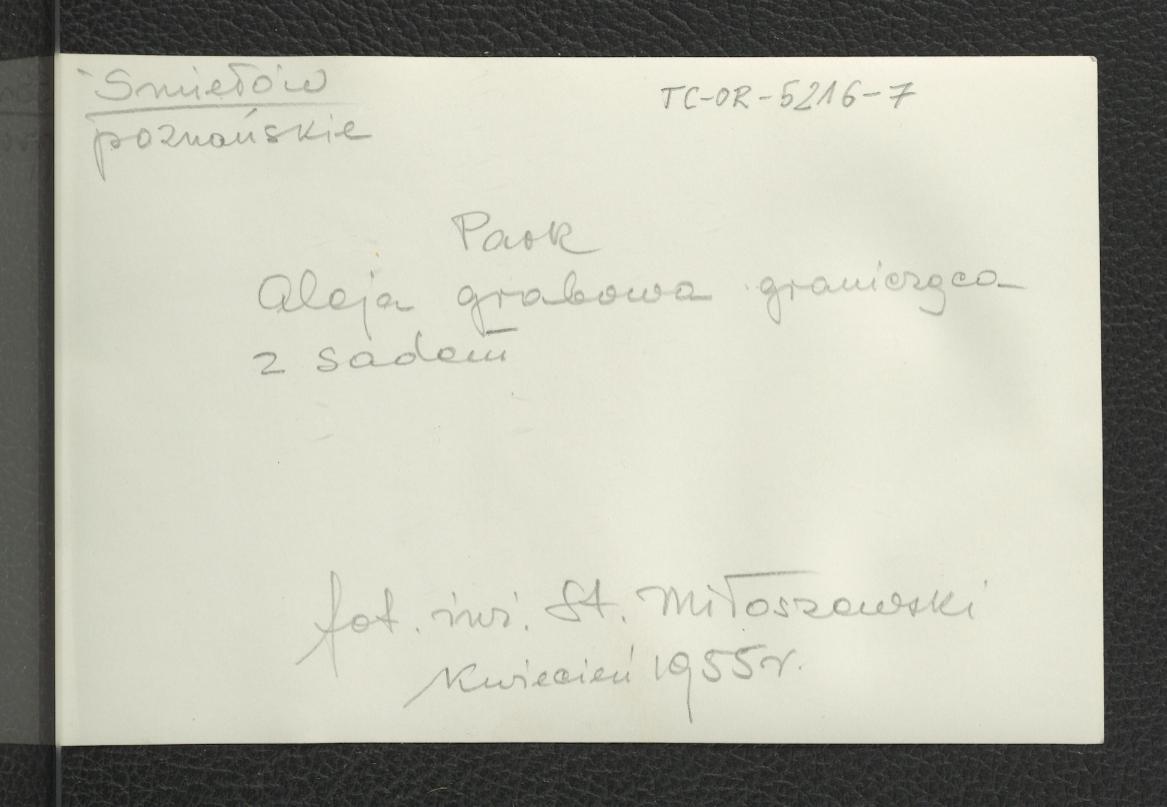 Śmiełów
poznańskie
TC-OR-5216-7
Park
Aleja grabowa granicząca
z sadem
fot. inż. St. Miłoszewski
Kwiecień 1955 r.